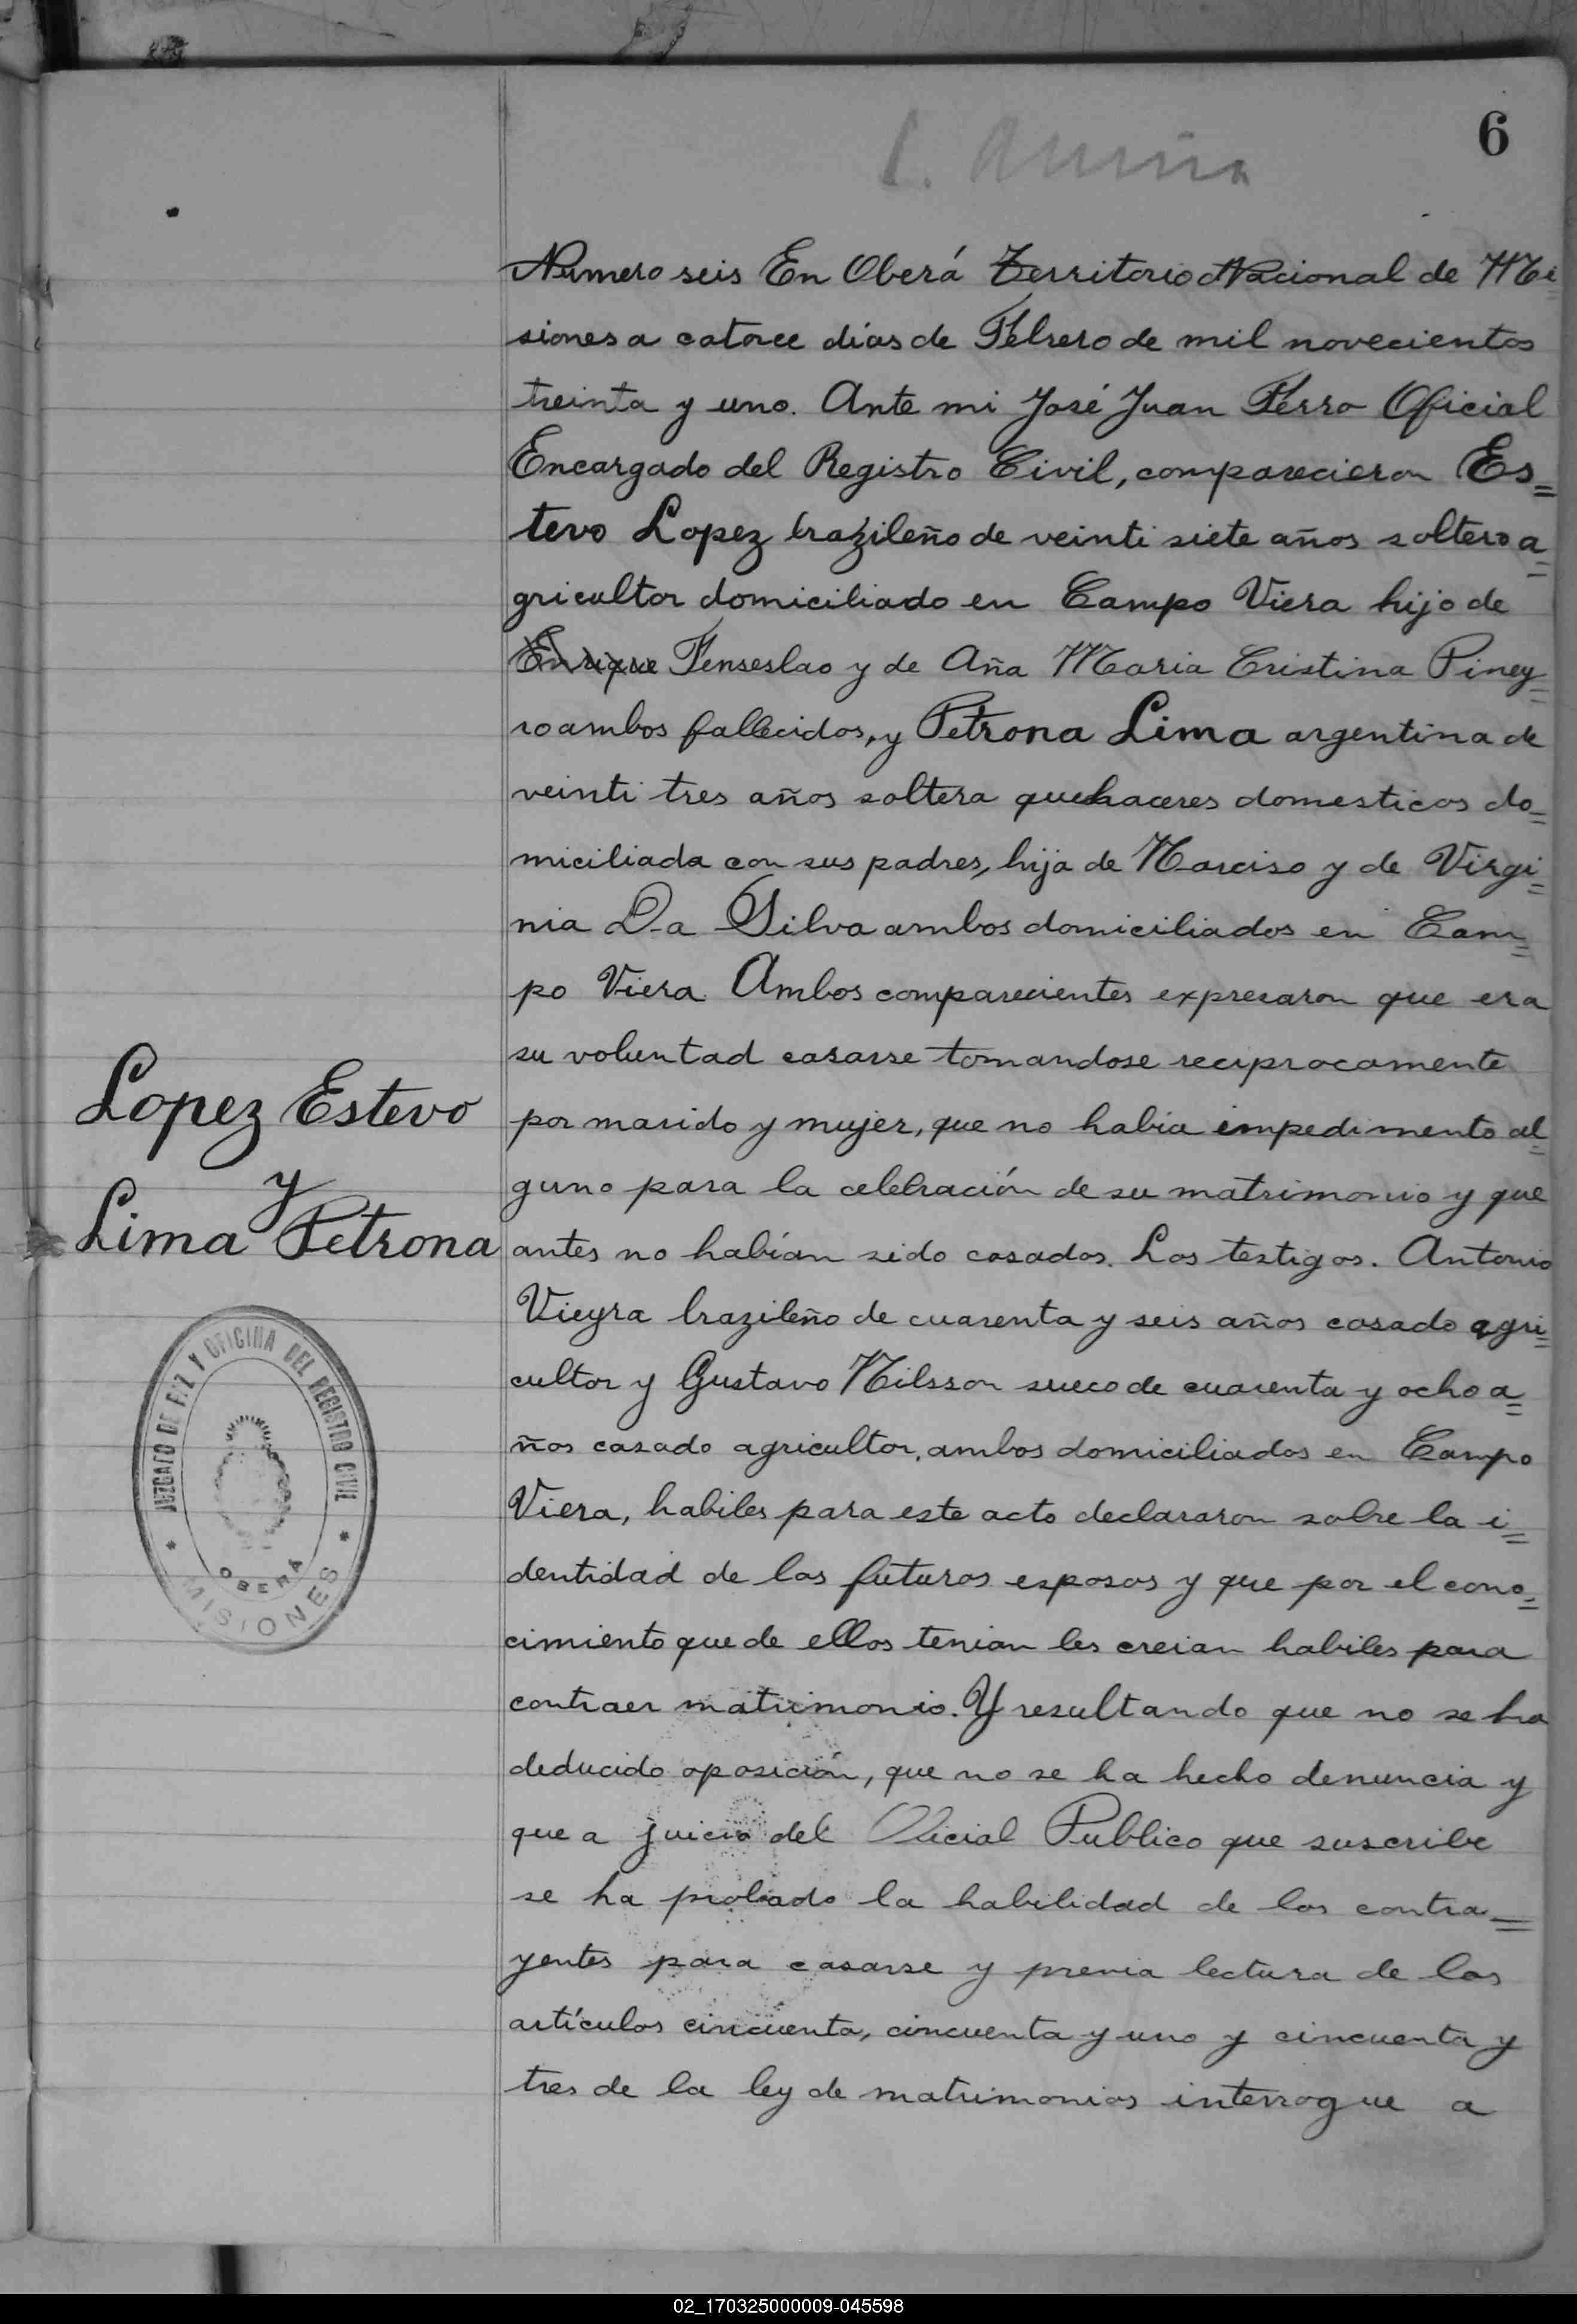 6
Numero seis En Oberá Territorio Nacional de Mi=
siones a catorce días de Febrero de mil novecientos
treinta y uno. Ante mi José Juan Ferro Oficial
Encargado del Registro Civil, comparecieron Es=
tevo Lopez brazileño de veinti siete años soltero a=
gricultor domiciliado en Campo Viera hijo de
Enrique Fenseslao y de Aña Maria Cristina Piney=
ro ambos fallecidos, y Petrona Lima argentina de
veinti tres años soltera quehaceres domesticos do=
miciliada con sus padres, hija de Narciso y de Virgi=
nia Da Silva ambos domiciliados en Cam=
po Viera Ambos comparecientes expresaron que era
su voluntad casarse tomandose reciprocamente
por marido y mujer, que no habia impedimento al=
guno para la celebración de su matrimonio y que
antes no habían sido casados. Los testigos. Antonio
Vieyra brazileño de cuarenta y seis años casado agri=
cultor y Gustavo Nilsson sueco de cuarenta y ocho a=
ños casado agricultor, ambos domiciliados en Campo
Viera, habiles para este acto declararon sobre la i=
dentidad de los futuros esposos y que por el cono=
cimiento que de ellos tenian les creian habiles para
contraer matrimonio. Y resultando que no se ha
deducido oposición, que no se ha hecho denuncia y
que a juicio del Oficial Publico que suscribe
se ha probado la habilidad de los contra=
yentes para casarse y previa lectura de los
artículos cincuenta, cincuenta y uno y cincuenta y
tres de la ley de matrimonios interrogue a
Lopez Estevo
y
Lima Petrona
JUZGADO DE PAZ Y OFICINA DEL REGISTRO CIVIL
OBERÁ
* MISIONES *
02_170325000009-045598